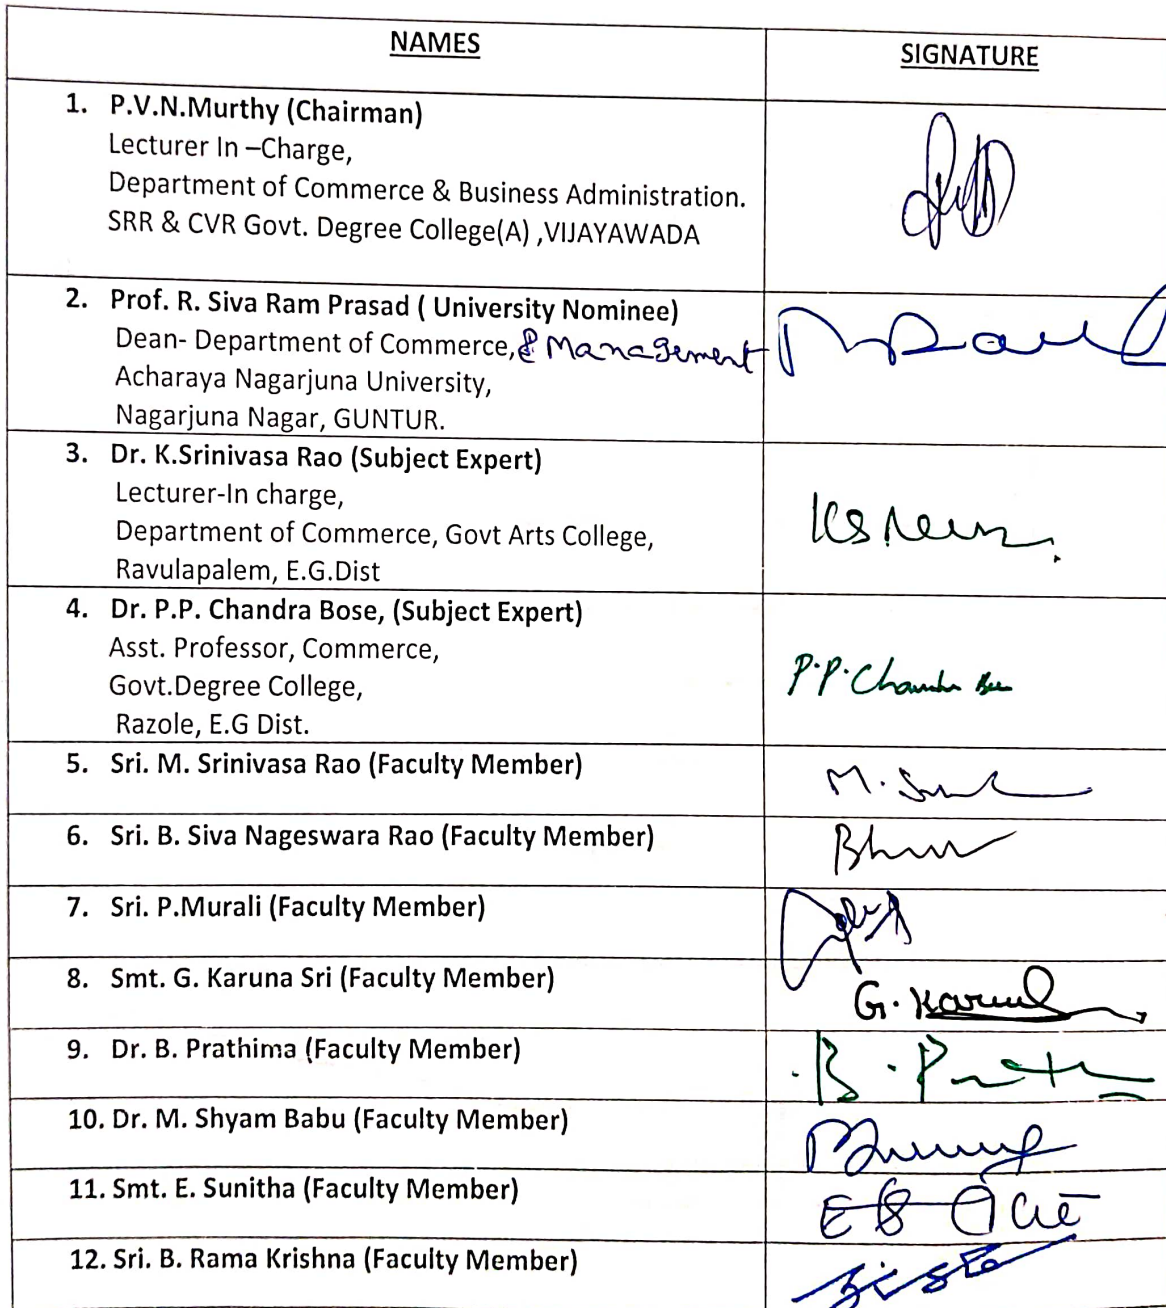 NAMES
SIGNATURE
1. P.V.N.Murthy (Chairman)
Lecturer In –Charge,
Department of Commerce & Business Administration.
SRR & CVR Govt. Degree College(A) ,VIJAYAWADA
2. Prof. R. Siva Ram Prasad ( University Nominee)
Dean- Department of Commerce, & Management
Acharaya Nagarjuna University,
Nagarjuna Nagar, GUNTUR.
3. Dr. K.Srinivasa Rao (Subject Expert)
Lecturer-In charge,
Department of Commerce, Govt Arts College,
Ravulapalem, E.G.Dist
4. Dr. P.P. Chandra Bose, (Subject Expert)
Asst. Professor, Commerce,
Govt.Degree College,
Razole, E.G Dist.
P.P.
5. Sri. M. Srinivasa Rao (Faculty Member)
M.
6. Sri. B. Siva Nageswara Rao (Faculty Member)
7. Sri. P.Murali (Faculty Member)
8. Smt. G. Karuna Sri (Faculty Member)
G.
9. Dr. B. Prathima (Faculty Member)
B.
10. Dr. M. Shyam Babu (Faculty Member)
11. Smt. E. Sunitha (Faculty Member)
12. Sri. B. Rama Krishna (Faculty Member)